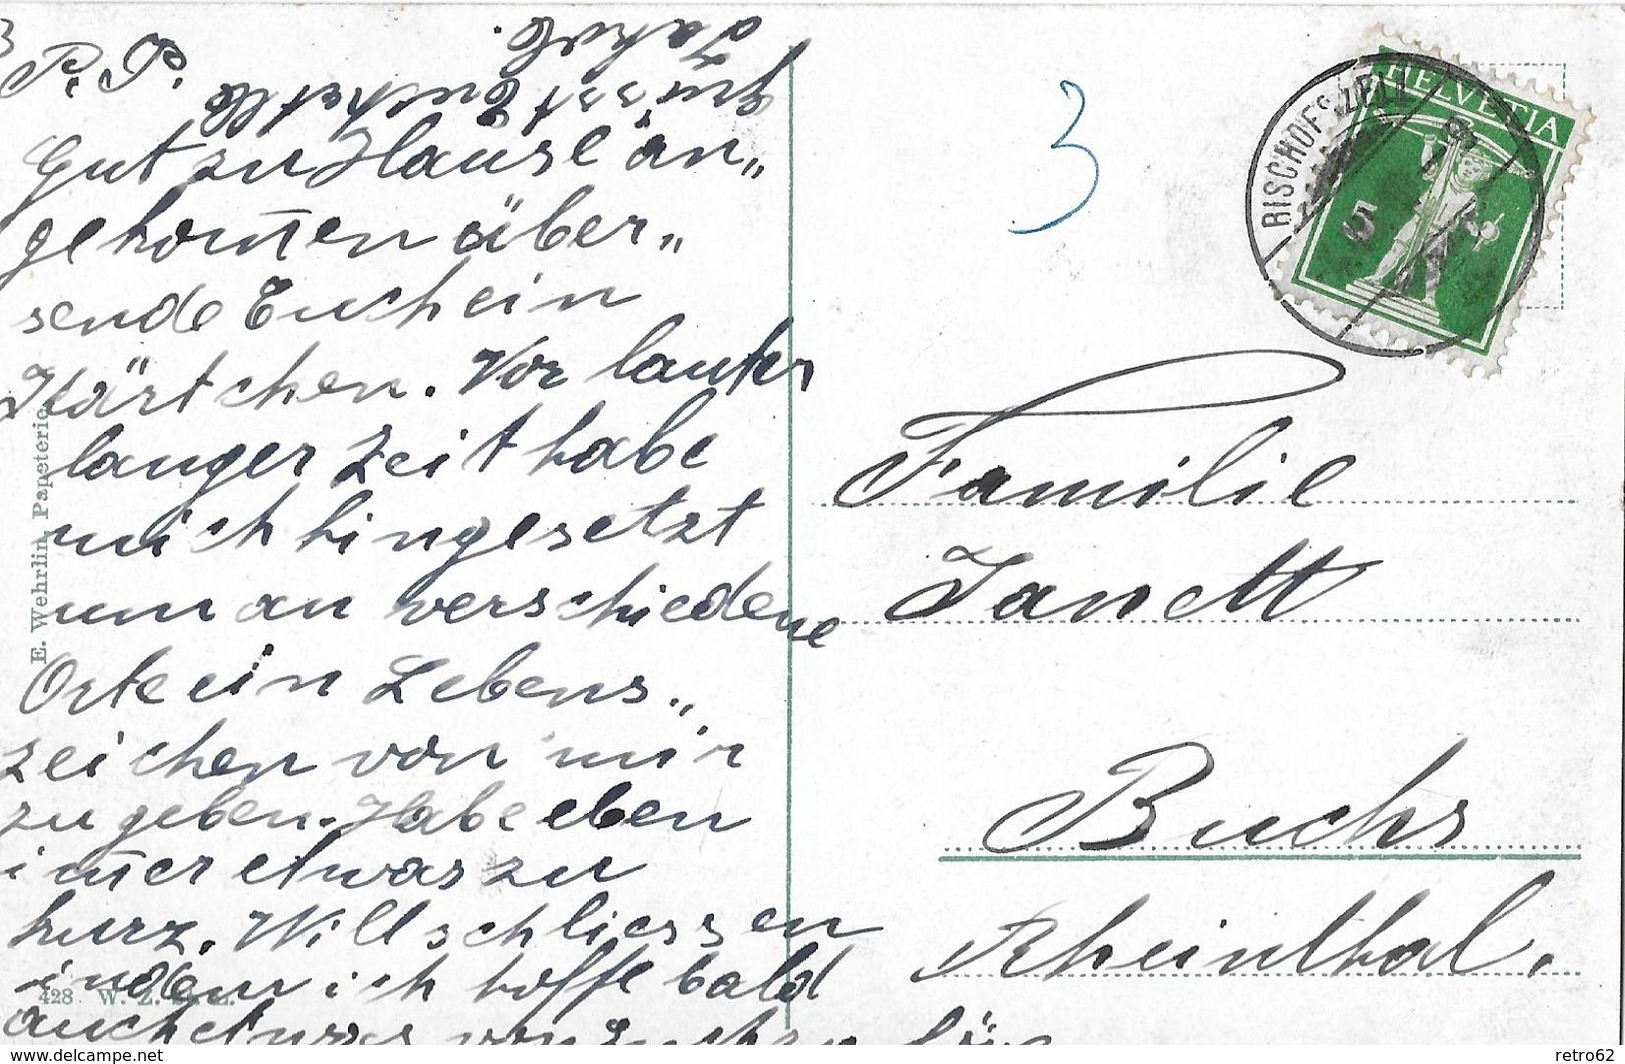 P. P.
Gut zu Hause an„
gekom̄en über„
sende Euch ein
Kärtchen. Vor lauter
langer Zeit habe
mich hingesetzt
um an verschiedene
Orte ein Lebens„
zeichen von mir
zu geben. Habe eben
im̄er etwas zu
kurz. Will schliessen
indem ich hoffe bald
auch etwas von
grüsst Euch alle
Jakob.
3
HELVETIA
5
BISCHOFSZELL
Familie
Janett
Buchs
Rheinthal.
E. Wehrlin, Papeterie,
428 W. Z.
the-collectors-company.com
retro62